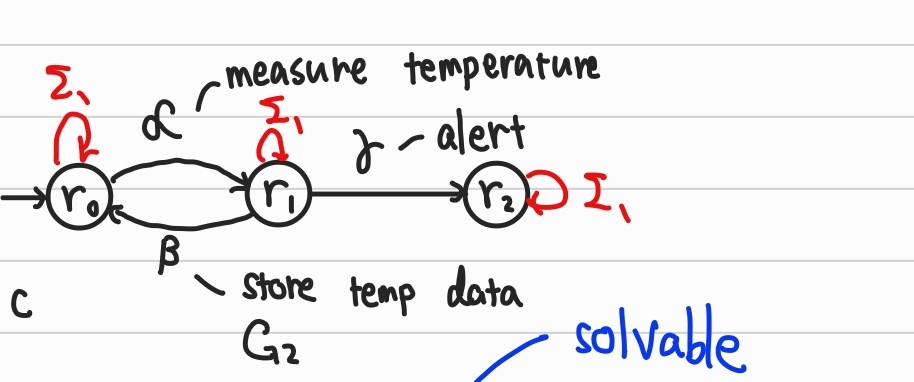 Σ₁ α measure temperature
Σ₁ γ alert
r₀ r₁ r₂ Σ₁
β store temp data
C
G₂ solvable